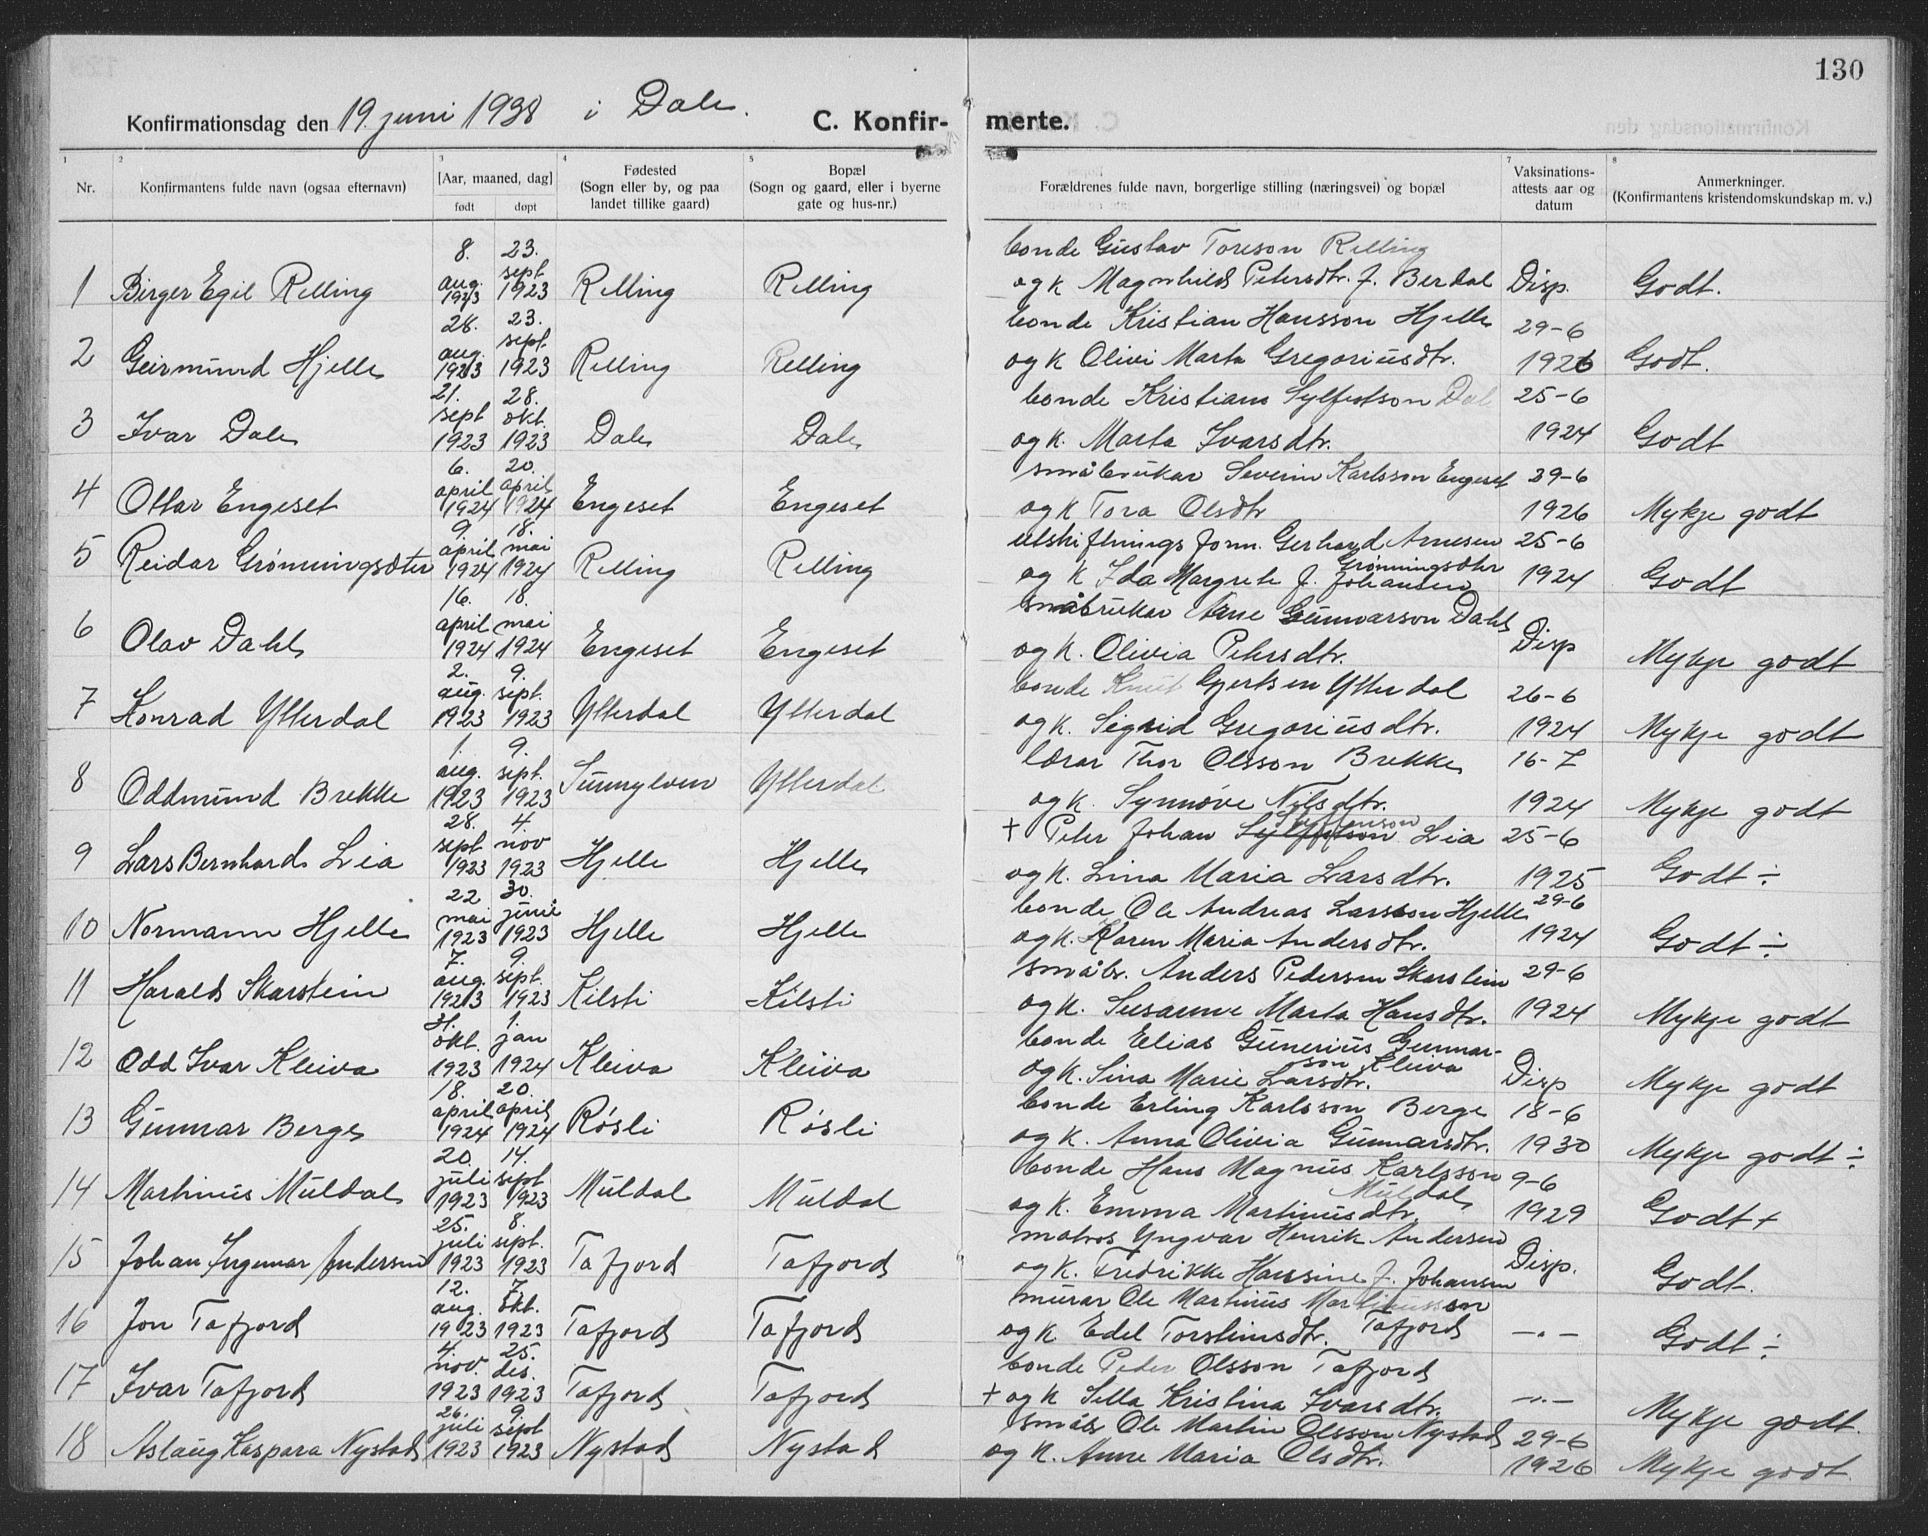 130
Konfirmationsdag den 19. juni 1938 i Dale.
C. Konfirmerte.
1 2 3 4 5 7 8
Nr.
Konfirmantens fulde navn (ogsaa efternavn)
[Aar, maaned, dag]
født døpt
Fødested
(Sogn eller by, og paa
landet tillike gaard)
Bopæl
(Sogn og gaard, eller i byerne
gate og hus-nr.)
Forældrenes fulde navn, borgerlige stilling (næringsvei) og bopæl
Vaksinations-
attests aar og
datum
Anmerkninger.
(Konfirmantens kristendomskundskap m. v.)
8. 23. bonde Gustav Toreson Relling
1 Birger Egil Relling aug. 1923 sept 1923 Relling Relling og k Magnhild Petersdtr. f. Berdal Disp. Godt.
28. 23. bonde Kristian Hansson Hjelle 29-6
2 Geirmund Hjelle aug. 1923 sept. 1923 Relling Relling og k Olivi Marta Gregoriusdtr. 1926 Godt.
21. 28. bonde Kristian Sylfestson Dal 25-6
3 Ivar Dale sept 1923 okt. 1923 Dale Dale og k. Marta Ivarsdtr. 1924 Godt
6. 20. småbrukar Severin Karlsson Engeset 29-6
4 Ottar Engeset april 1924 april 1924 Engeset Engeset og k Tora Olsdtr 1926 Mykje godt
9. 18. utskiftnings form. Gerhard Arnesen Grønningsæter 25-6
5 Reidar Grønningsæter april 1924 mai 1924 Relling Relling og k Ida Margrete f. Johansen 1924 Godt
16. 18. småbrukar Arne Gunnarson Dahl
6 Olav Dahl april 1924 mai 1924 Engeset Engeset og k. Olivia Petersdtr. Disp Mykje godt
2. 9. bonde Knut Gjertsen Ytterdal 26-6
7 Konrad Ytterdal aug. 1923 sept. 1923 Ytterdal Ytterdal og k. Sigrid Gregoriusdtr. 1924 Mykje godt
1. 9. lærar Thor Olsson Brekke 16-7
8 Oddmund Brekke aug. 1923 sept. 1923 Sunnylven Ytterdal og k. Synnøve Nilsdtr. 1924 Mykje godt
28. 4. + Peter Johan Sylfestson Lia 25-6
9 Lars Bernhard Lia sept 1923 nov 1923 Hjelle Hjelle og k. Lina Maria Larsdtr. 1925 Godt ÷
22 30. bonde Ole Andreas Larsson Hjelle 29-6
10 Normann Hjelle mai 1923 juni 1923 Hjelle Hjelle og k. Karen Maria Andersdtr. 1924 Godt ÷
7. 9. småbr. Anders Pedersen Skarstein 29-6
11 Harald Skarstein aug. 1923 sept. 1923 Kilsti Kilsti og k. Susanne Marta Hansdtr. 1924 Mykje godt
31. 1. bonde Elias Gunerius Gunnarson Kleiva
12 Odd Ivar Kleiva okt. 1923 jan 1924 Kleiva Kleiva og k. Sina Marie Larsdtr. Disp Mykje godt
18. 20. bonde Erling Karlsson Berge 18-6
13 Gunnar Berge april 1924 april 1924 Røsli Røsli og k. Anna Olivia Gunnarsdtr. 1930 Mykje godt ÷
20. 14. bonde Hans Magnus Karlsson Muldal 9-6
14 Martinus Muldal juli 1923 sept 1923 Muldal Muldal og k. Emma Martinusdtr. 1929 Godt +
25. 8. matros Yngvar Henrik Andersen
15 Johan Ingemar Andersen juli 1923 sept. 1923 Tafjord Tafjord og k. Fredrikke Hansine f. Johansen Disp. Godt.
12. 7. murar Ole Martinus Martinussen Tafjord
16 Jon Tafjord aug. 1923 okt. 1923 Tafjord Tafjord og k Edel Torsteinsdtr. —"— Godt ÷
4. 25. bonde Peder Olsson Tafjord
17 Ivar Tafjord nov. 1923 des. 1923 Tafjord Tafjord + og k Silla Kristina Ivarsdtr. —"— Mykje godt.
26. 9. småbr Ole Martin Olsson Nystad 29-6
18 Aslaug Kaspara Nystad juli 1923 sept 1923 Nystad Nystad og k. Anne Maria Olsdtr. 1926 Mykje godt.